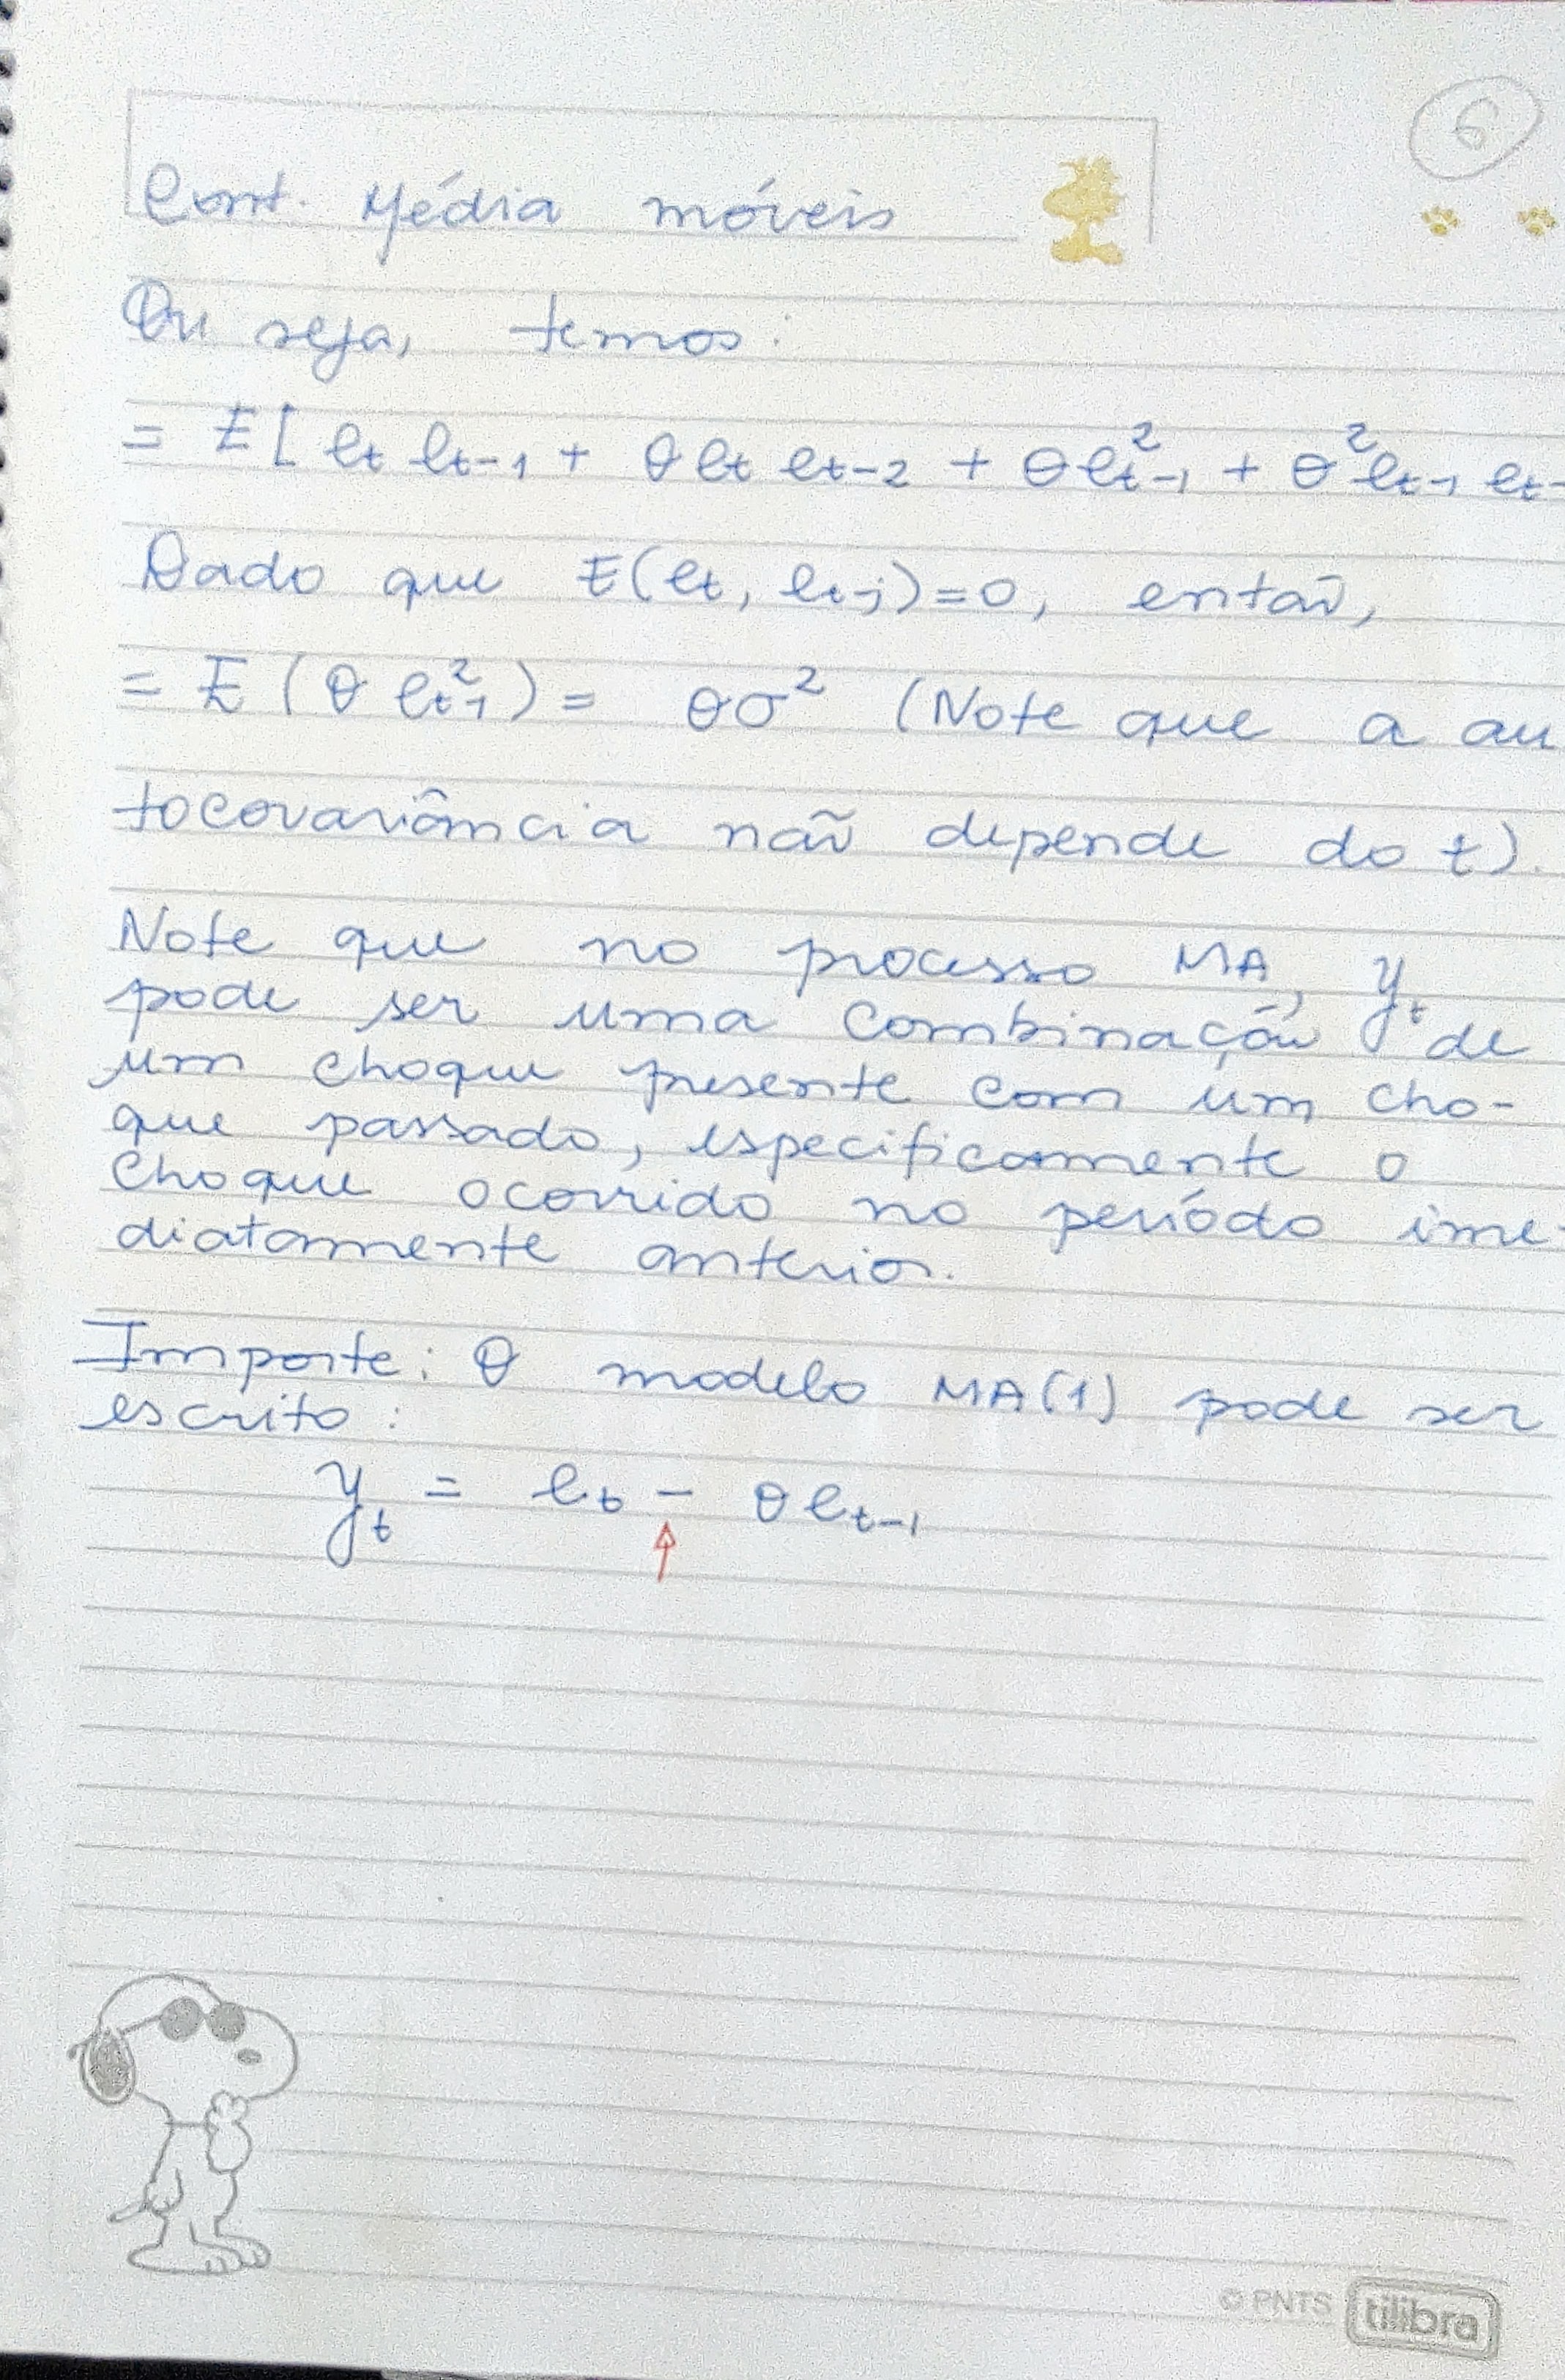 6
Cont. Média móveis
Ou seja, temos:
= E[ et et-1 + θ et et-2 + θ e²t-1 + θ² et-1 et-
Dado que E(et, et-j)=0, então,
= E (θ e²t-1) = θσ² (Note que a au
tocovariância não depende do t).
Note que no processo MA, yt
pode ser uma combinação de
um choque presente com um cho-
que passado, especificamente o
choque ocorrido no período ime-
diatamente anterior.
Importe: O modelo MA(1) pode ser
escrito:
yt = et - θ et-1
© PNTS tilibra